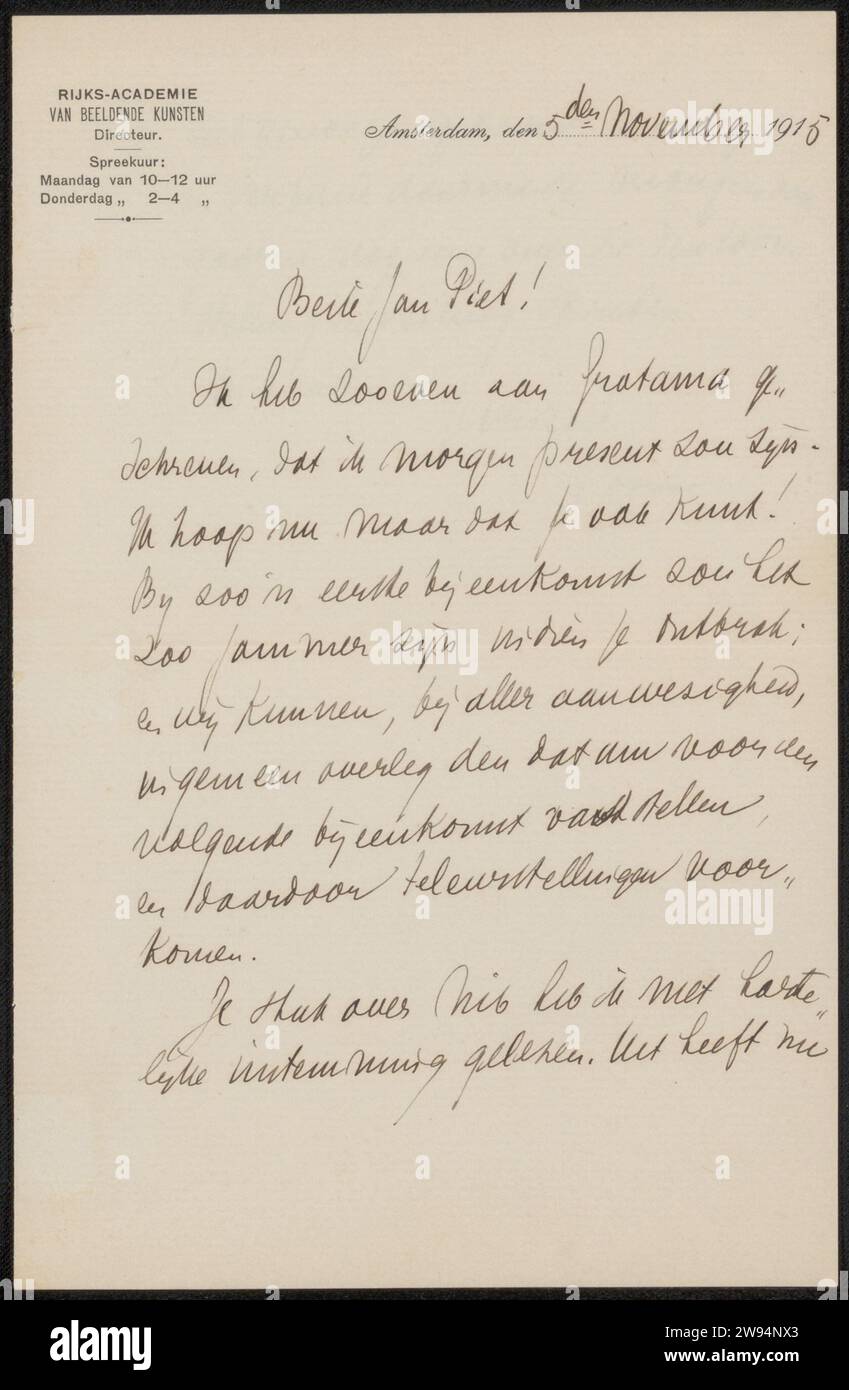 RIJKS-ACADEMIE
VAN BEELDENDE KUNSTEN
Directeur.
Spreekuur:
Maandag van 10—12 uur
Donderdag „ 2—4 „
Amsterdam, den 5den November 1915
Beste Jan Piet!
Ik heb zooeven aan Gratama ge„
schreven, dat ik morgen present zou zijn.
Ik hoop nu maar dat je ook kunt!
By zoo'n eerste bijeenkomst zou het
zoo jammer zijn indien je ontbrak;
en wij kunnen, bij aller aanwezigheid,
in gemeen overleg den datum voor een
volgende bijeenkomst vaststellen,
en daardoor teleurstellingen voor„
komen.
Je stuk over Nib heb ik met harte„
lijke instemming gelezen. Het heeft mij
alamy
Image ID: 2W94NX3
www.alamy.com